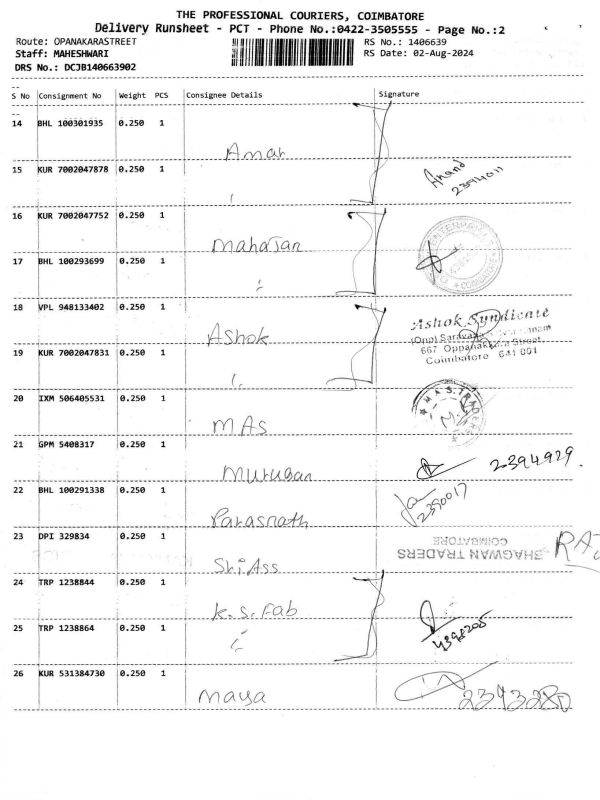 THE PROFESSIONAL COURIERS, COIMBATORE
Delivery Runsheet - PCT - Phone No.:0422-3505555 - Page No.:2
Route: OPANAKARASTREET RS No.: 1406639
Staff: MAHESHWARI RS Date: 02-Aug-2024
DRS No.: DCJB140663902
S No Consignment No Weight PCS Consignee Details Signature
14 BHL 100301935 0.250 1 Amar
15 KUR 7002047878 0.250 1 Anand 2394011
16 KUR 7002047752 0.250 1 Mahajan
17 BHL 100293699 0.250 1 COIMBATORE
18 VPL 948133402 0.250 1 Ashok Ashok Syndicate
667 Oppanakkara Street,
19 KUR 7002047831 0.250 1 Coimbatore 641 001
20 IXM 506405531 0.250 1 MAS M.A.S. TRADERS
21 GPM 5408317 0.250 1 Murugan 2394929.
22 BHL 100291338 0.250 1 Parasnath 2390017
23 DPI 329834 0.250 1 Sri Ass BHAGWAN TRADERS COIMBATORE
24 TRP 1238844 0.250 1 K.S. Fab
25 TRP 1238864 0.250 1
26 KUR 531384730 0.250 1 Maya 2393280